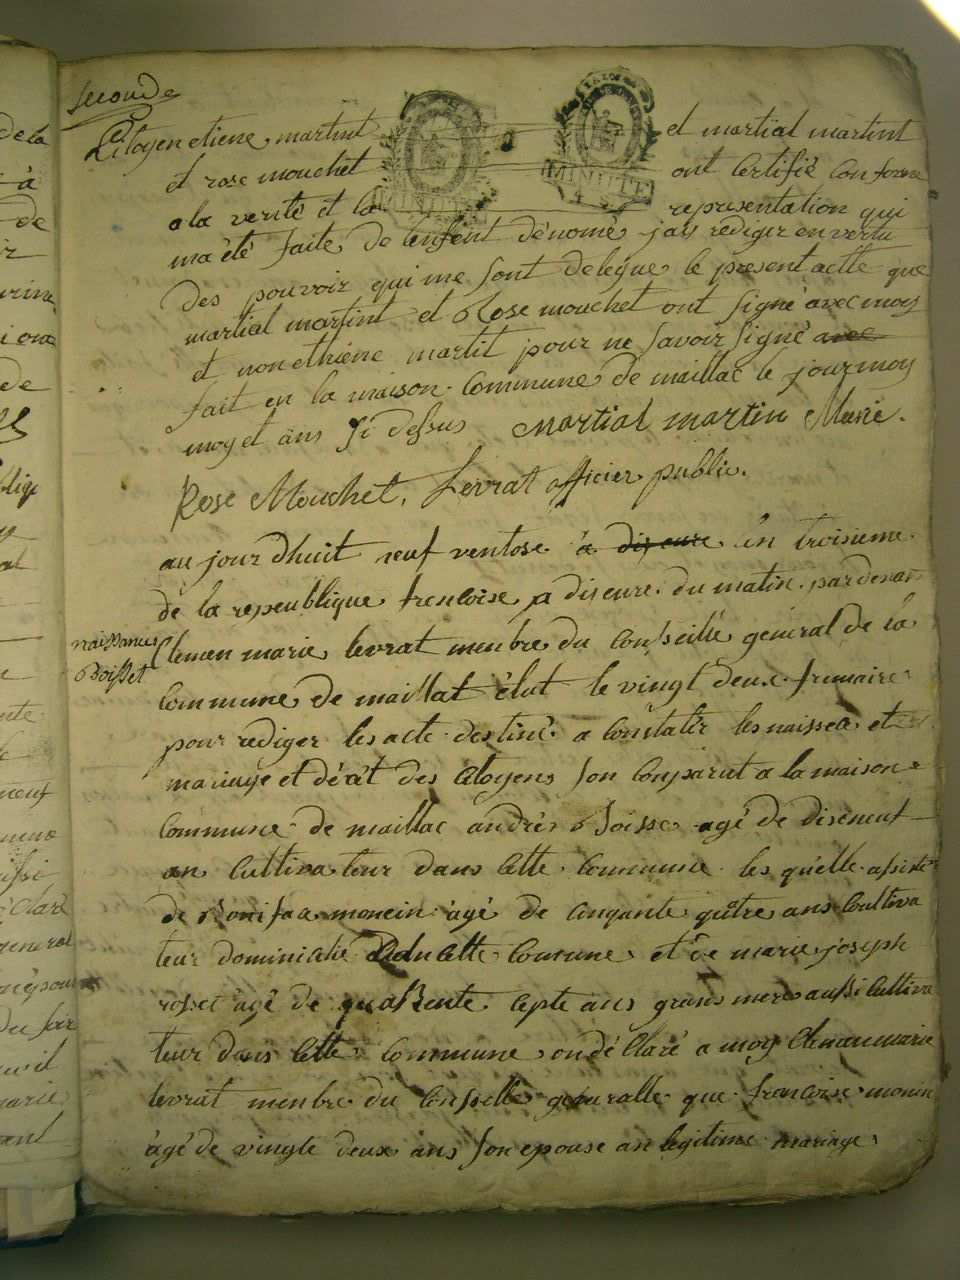 seconde
Citoyen etiene martint et martial martint
et rose mouchet ont Certifié Conforme
MINUTE MINUTE
a la verité et la representation qui
ma été faite de lenfent dénomé jais rediger en vertu
des pouvoir qui me sont delegue le present actte que
martial martint et Rose mouchet ont signé avec moy
et non ethiene martit pour ne savoir signé avec
fait en la maison Commune de maillac le jour moy
moy et ans si dessus martial martin Marie.
Rose Mouchet, Levrat officier public.
au jour dhuit neuf ventose à diseure len troisieme
de la repeublique frencoise a diseure du matin pardevan
naissance
Boisset
Clemen marie levrat menbre du Conseille general de la
Commune de maillat élut le vingt deux frimaire
pour rediger les acte destiné a Constatér les naissece et
mariage et décét des Citoyens son Conparut a la maison
Commune de maillac andré Boisse agé de diseneuf
an Cultivateur dans Cette Commune les quelle assisté
de Bonifaa monein agé de Cinqante qutre ans Cultiva
teur dominicilié ddn Cette Comune et de marie joseph
rosset agé de quattente septe ans grans mere aussi Cultiva
teur dans Cette Commune on déClaré a moy Cleman marie
levrat menbre du Conselle genuralle que francoise monin
agé de vingte deux ans son epouse an legitime mariage